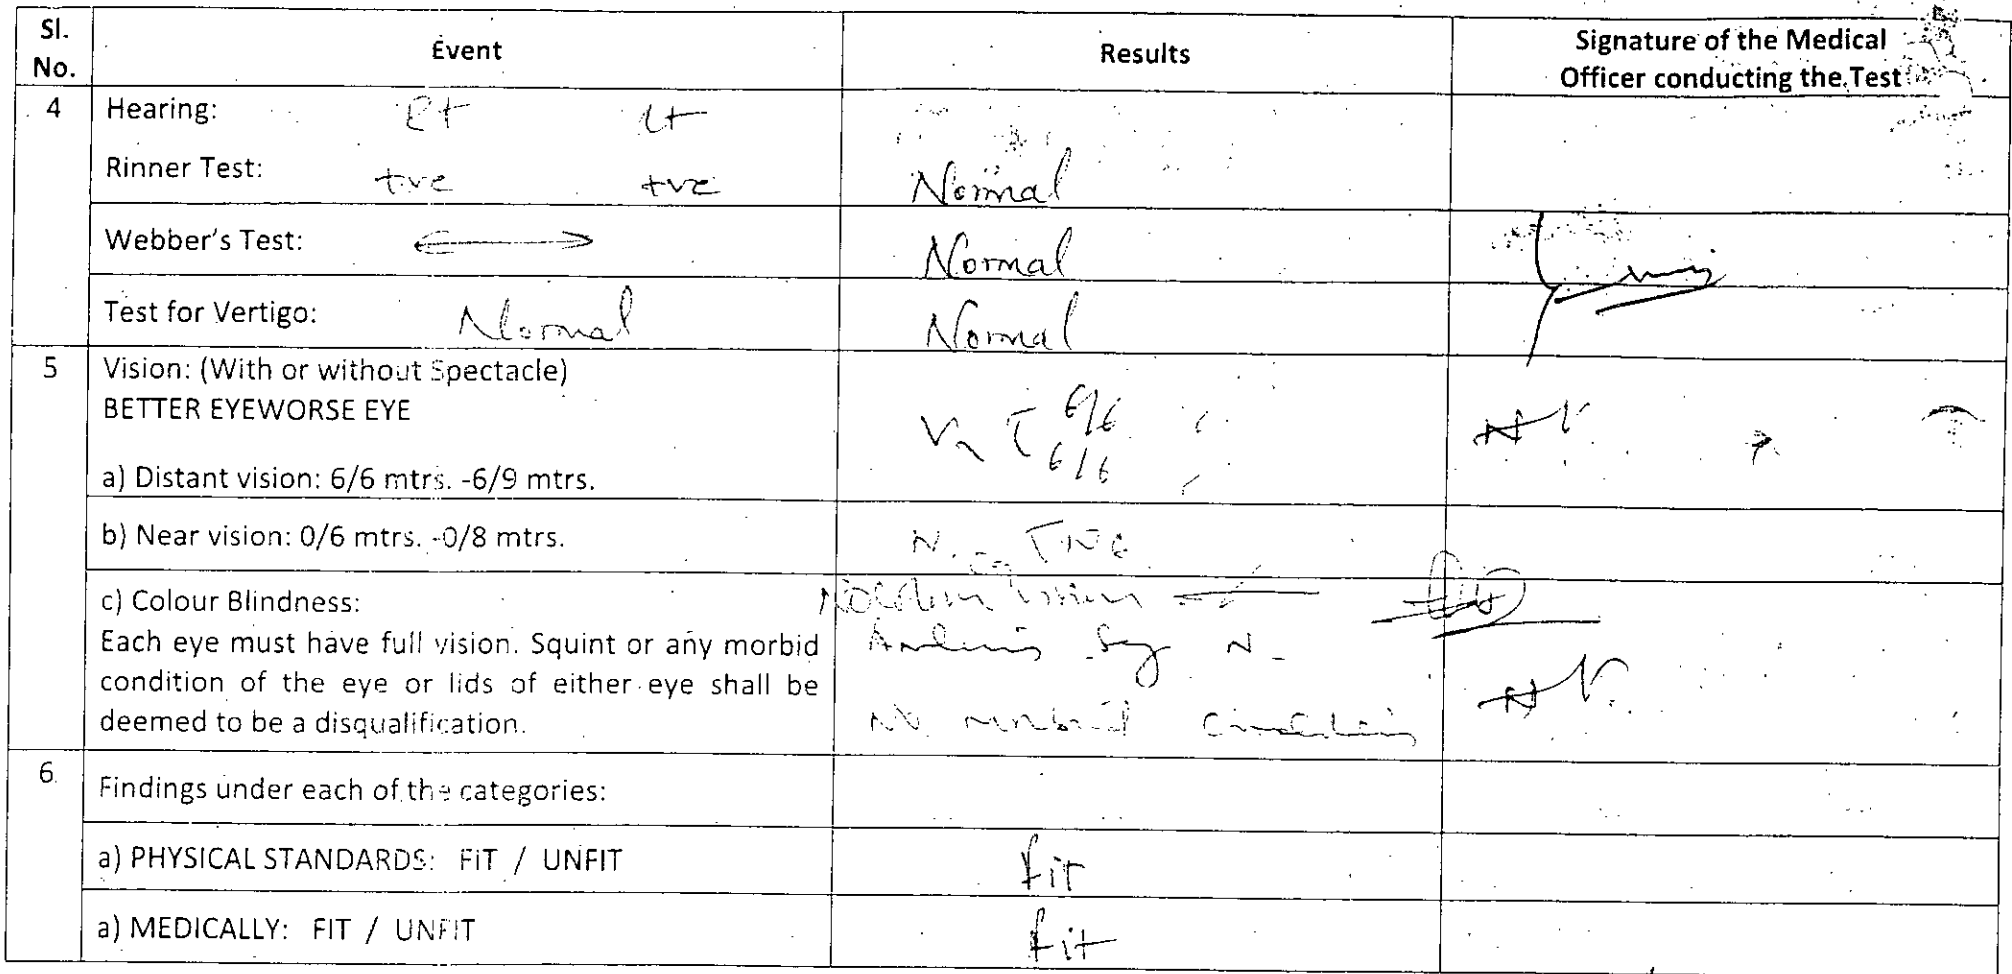 Sl. No. Event Results Signature of the Medical Officer conducting the Test
4 Hearing: Rt Lt
Rinner Test: +ve +ve Normal
Webber's Test: Normal
Test for Vertigo: Normal Normal
5 Vision: (With or without Spectacle)
BETTER EYEWORSE EYE
6/6
6/6
a) Distant vision: 6/6 mtrs. -6/9 mtrs.
b) Near vision: 0/6 mtrs. -0/8 mtrs.
c) Colour Blindness:
Each eye must have full vision. Squint or any morbid
condition of the eye or lids of either eye shall be
deemed to be a disqualification. No morbid
6. Findings under each of the categories:
a) PHYSICAL STANDARDS: FIT / UNFIT Fit
a) MEDICALLY: FIT / UNFIT fit